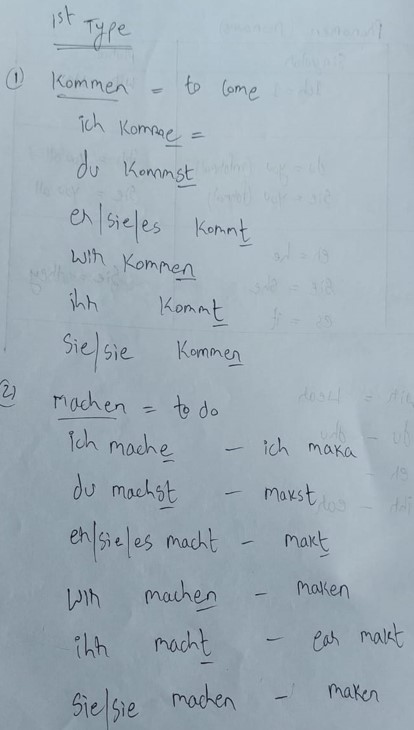 1st Type
① Kommen = to come
ich Komme =
du Kommst
er/sie/es Kommt
wir Kommen
ihr Kommt
Sie/sie Kommen
2) machen = to do
ich mache - ich maka
du machst - makst
er/sie/es macht - makt
wir machen - maken
ihr macht - ear makt
Sie/sie machen - maken